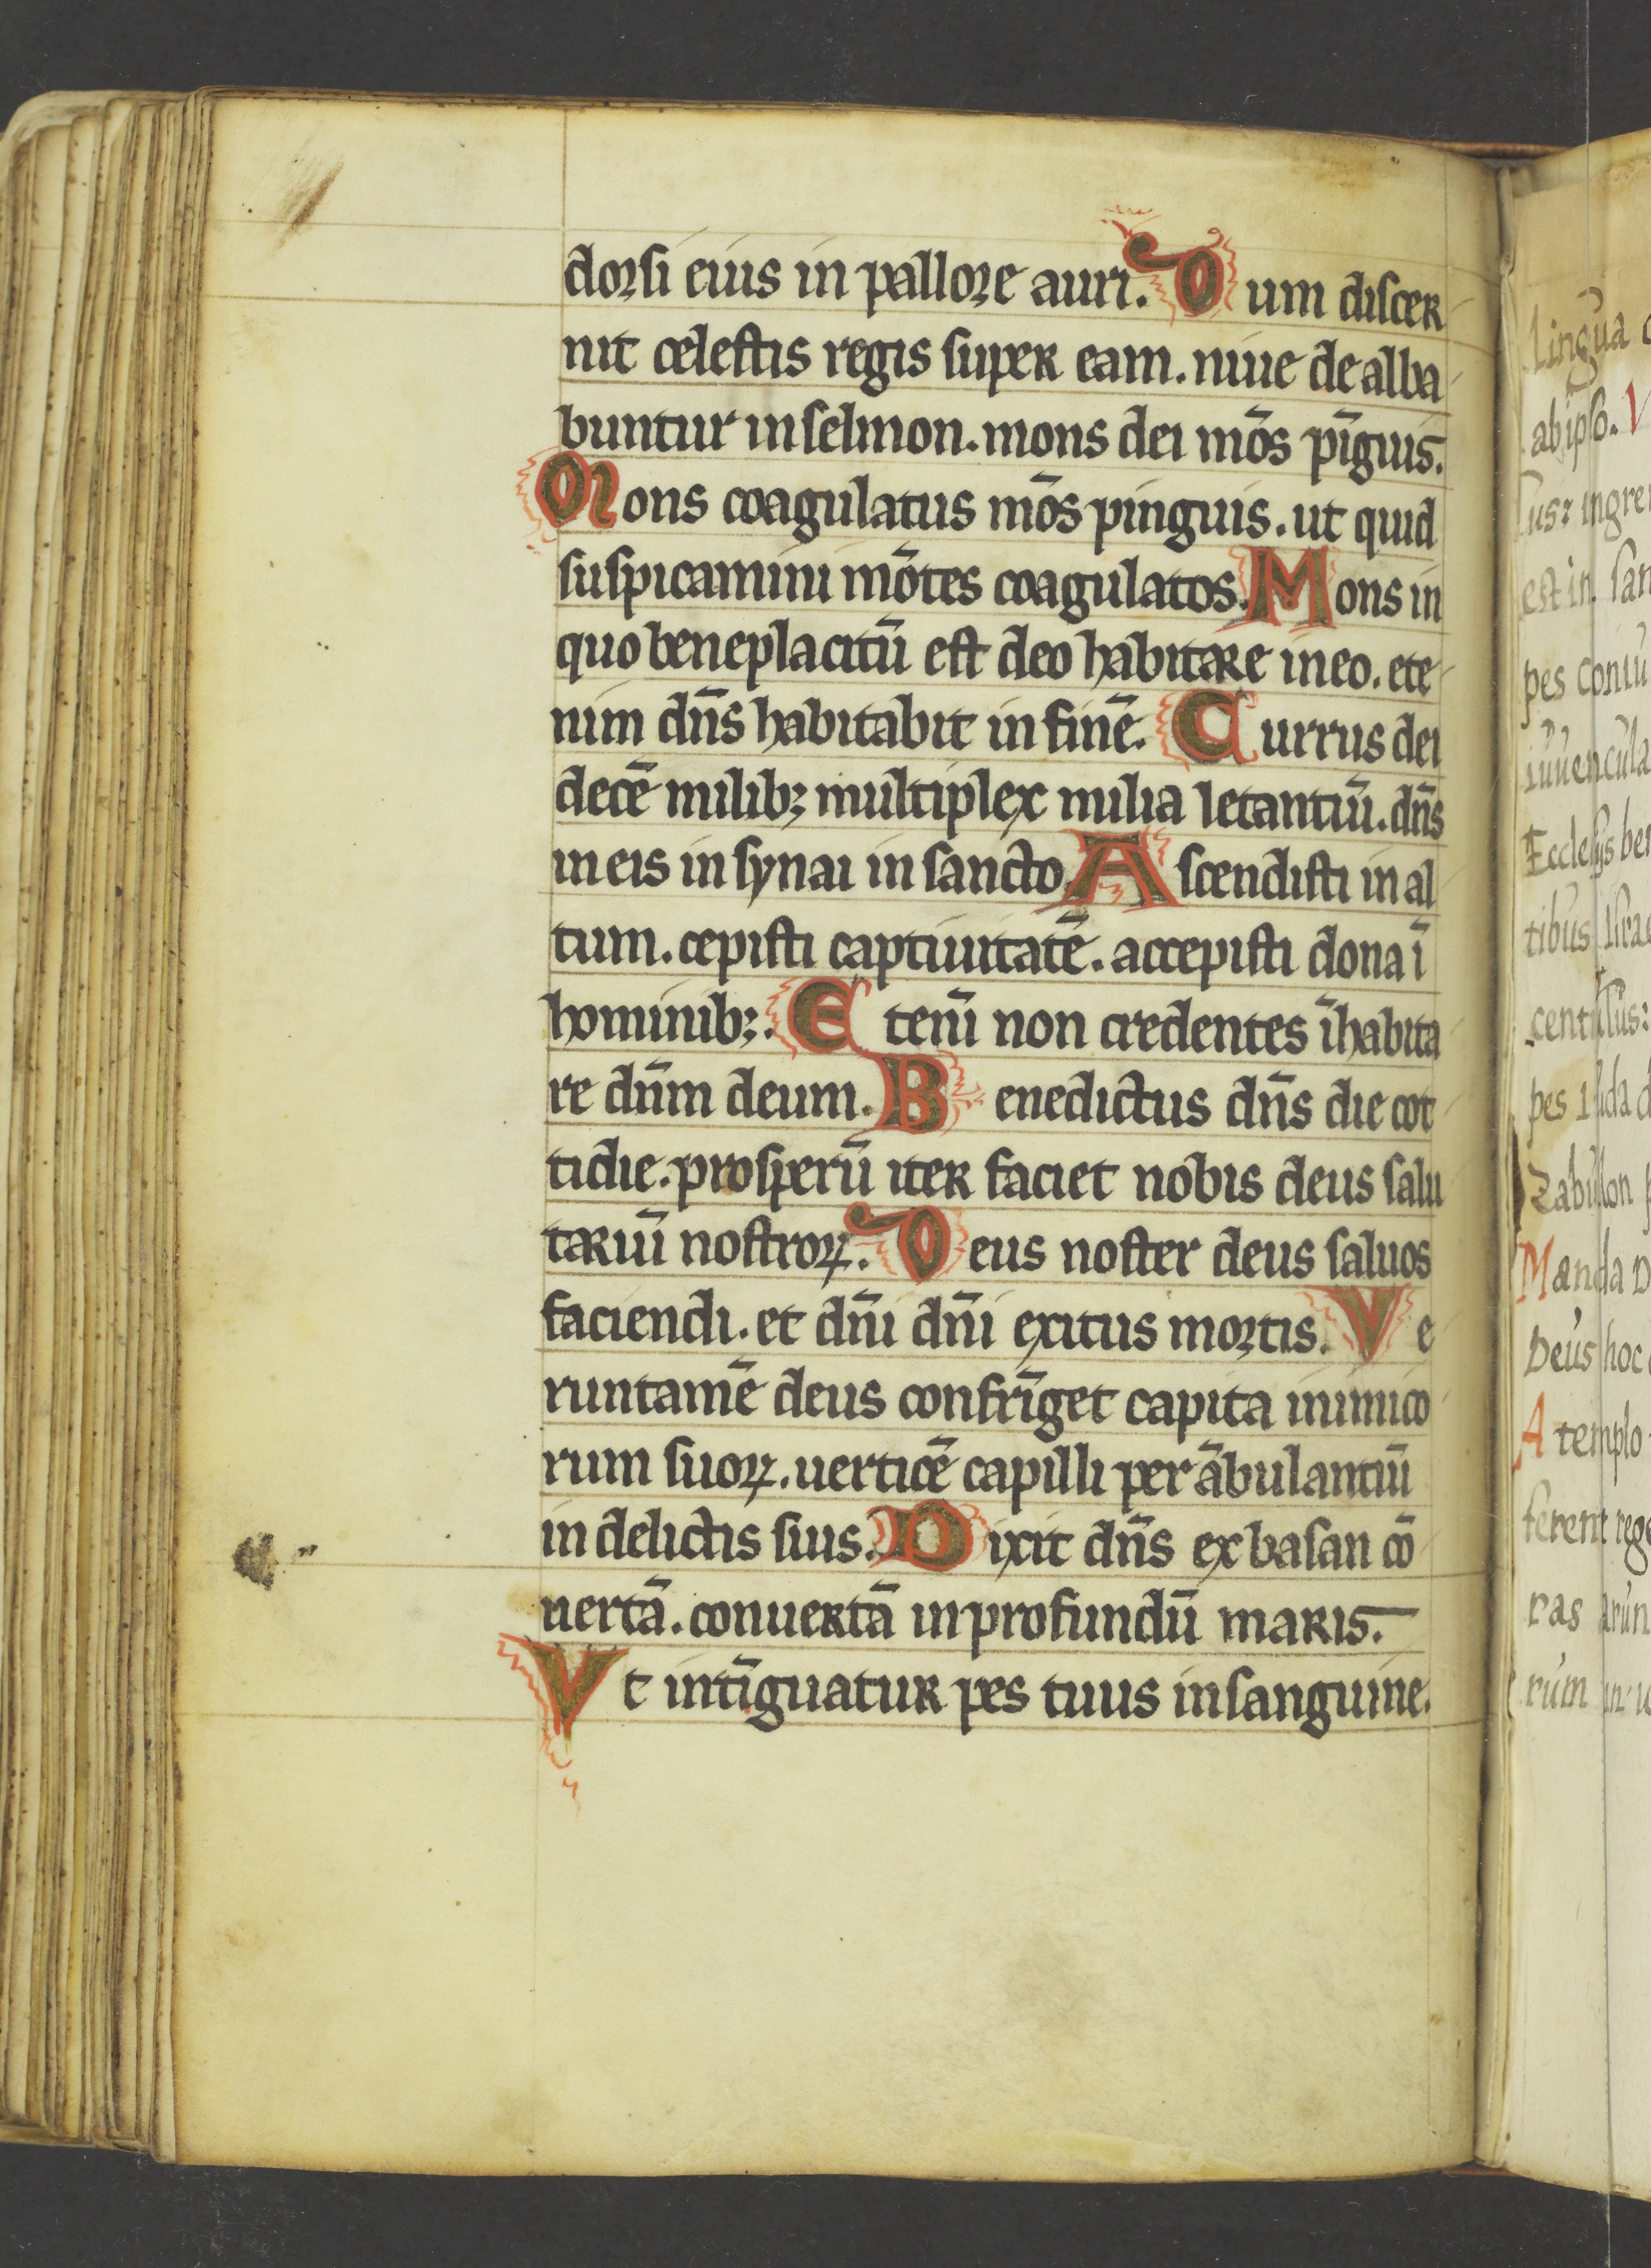 dorsi eius in pallore auri. Dum discer
nit celestis regis super eam. niue de alba
buntur in selmon. mons dei mōs pīguis.
Mons coagulatus mōs pinguis. ut quid
suspicamini mōtes coagulatos. Mons in
quo beneplacitū est deo habitare in eo. ete
nim dn̄s habitabit in finē. Currus dei
decē milib; multiplex milia letantiū. dn̄s
in eis in synai in sancto. Ascendisti in al
tum. cepisti captiuitatē. accepisti dona ī
hominib;. Etenī non credentes īhabita
re dn̄m deum. Benedictus dn̄s die cot
tidie. prosperū iter faciet nobis deus salu
tariū nostroꝝ. Deus noster deus saluos
faciendi. et dn̄i dn̄i exitus mortis. Ve
runtamē deus confrīget capita inimico
rum suoꝝ. uerticē capilli perābulantiū
in delictis suis. Dixit dn̄s ex basan cō
uertā. conuertā in profundū maris.
Vt intīguatur pes tuus in sanguine.
lingua
ab ipso.
sus: ingre
est in san
pes coniu
iuuencula
Ecclesijs ben
tibus Isra
centissus:
pes Iuda
Zabulon
Manda D
Deus hoc
A templo
ferent reg
ras arun
rum in u